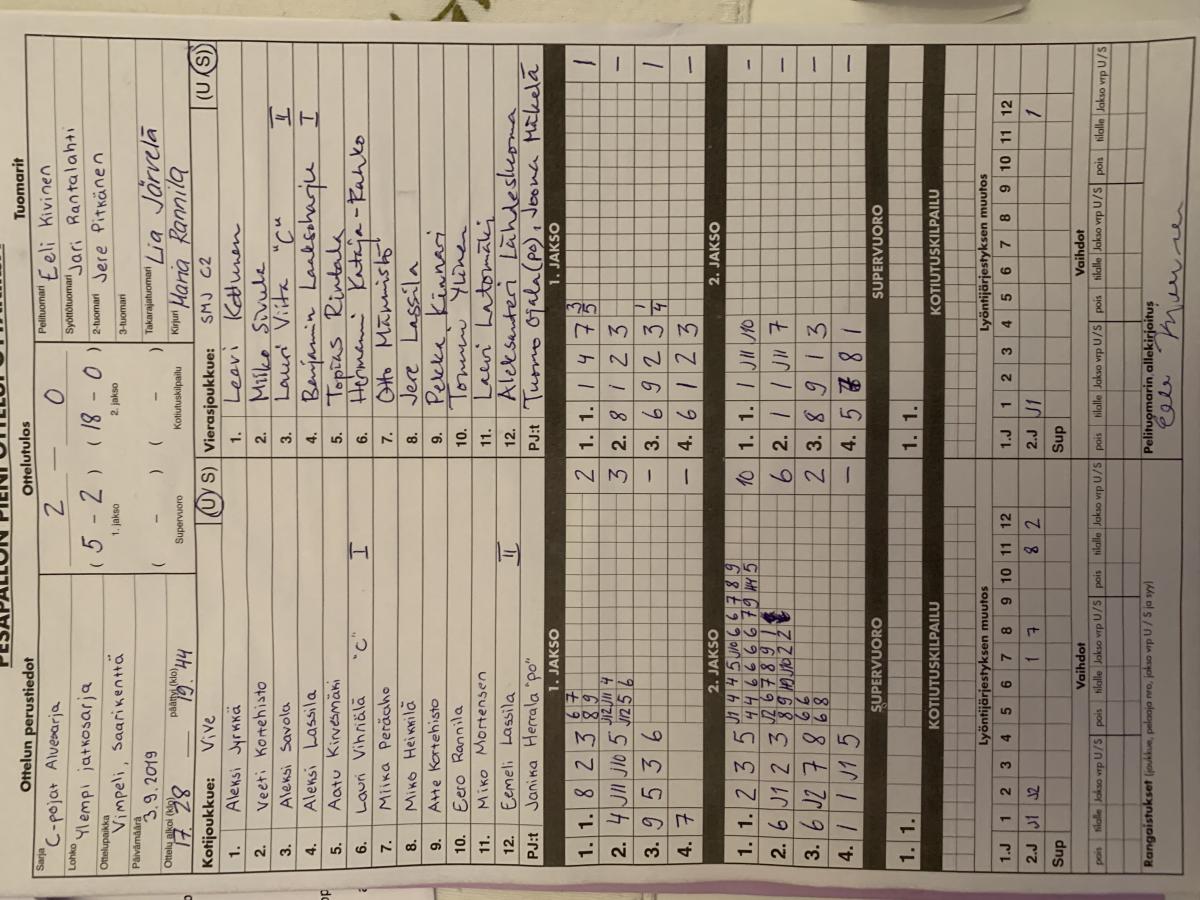 PESÄPALLON PIENI OTTELUPÖYTÄKIRJA
Ottelun perustiedot
Sarja C-pojat Aluesarja
Lohko Ylempi jatkosarja
Ottelupaikka Vimpeli, Saarikenttä
Päivämäärä 3.9.2019
Ottelu alkoi (klo) 17.28 päättyi (klo) 19.44
Ottelutulos
2 — 0
( 5 - 2 ) ( 18 - 0 )
1. jakso 2. jakso
( - ) ( - )
Supervuoro Kotiutuskilpailu
Tuomarit
Pelituomari Eeli Kivinen
Syöttötuomari Jari Rantalahti
2-tuomari Jere Pitkänen
3-tuomari
Takarajatuomari Lia Järvelä
Kirjuri Maria Rannila
Kotijoukkue: Vive (U/S)
1. Aleksi Jyrkkä
2. Veeti Kortehisto
3. Aleksi Savola
4. Aleksi Lassila
5. Aatu Kirvesmäki
6. Lauri Vihriälä "C" I
7. Miika Peräaho
8. Miko Heikkilä
9. Atte Kortehisto
10. Eero Rannila
11. Miko Mortensen
12. Eemeli Lassila II
PJ:t Janika Herrala "po"
Vierasjoukkue: SMJ C2 (U/S)
1. Leevi Kettunen
2. Miiko Sivula
3. Lauri Viita "C" II
4. Benjamin Laaksoharju I
5. Topias Rintala
6. Hermanni Kataja-Rahko
7. Otto Männistö
8. Jere Lassila
9. Pekka Kinnari
10. Tommi Ylinen
11. Lauri Latomäki
12. Aleksanteri Lähdeskorpi
PJ:t Tuomo Ojala(po), Joona Mäkelä
1. JAKSO
1. 1. 8 2 3 6 7 8 9 2
2. 4 J11 J10 5 J12 J11 4 J12 5 6 3
3. 9 5 3 6 –
4. 7 –
1. JAKSO
1. 1. 1 4 7 3 5 1
2. 8 1 2 3 –
3. 6 9 2 3 1 4 1
4. 6 1 2 3 –
2. JAKSO
1. 1. 2 3 5 10
2. 6 J1 2 3 6
3. 6 J2 7 8 6 6 6 8 2
4. 1 1 J1 5 –
2. JAKSO
1. 1. 1 J11 J10 –
2. 1 1 J11 7 –
3. 8 9 1 3 –
4. 5 8 1 –
SUPERVUORO
1. 1.
SUPERVUORO
1. 1.
KOTIUTUSKILPAILU
KOTIUTUSKILPAILU
Lyöntijärjestyksen muutos
1.J 1 2 3 4 5 6 7 8 9 10 11 12
2.J J1 J2 1 7 8 2
Sup
Lyöntijärjestyksen muutos
1.J 1 2 3 4 5 6 7 8 9 10 11 12
2.J J1 1
Sup
Vaihdot
pois tilalle Jakso vrp U/S pois tilalle Jakso vrp U/S pois tilalle Jakso vrp U/S
Vaihdot
pois tilalle Jakso vrp U/S pois tilalle Jakso vrp U/S pois tilalle Jakso vrp U/S
Rangaistukset (joukkue, pelaaja nro, jakso vrp U / S ja syy)
Pelituomarin allekirjoitus
Eeli Kivinen